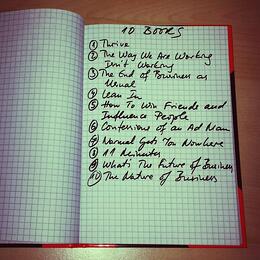 10 BOOKS
1 Thrive
2 The Way We Are Working
Isn't Working
3 The End of Business as
Usual
4 Lean In
5 How To Win Friends and
Influence People
6 Confessions of an Ad Man
7 Normal Gets You Nowhere
8 11 Minutes
9 What's The Future of Business
10 The Nature of Business